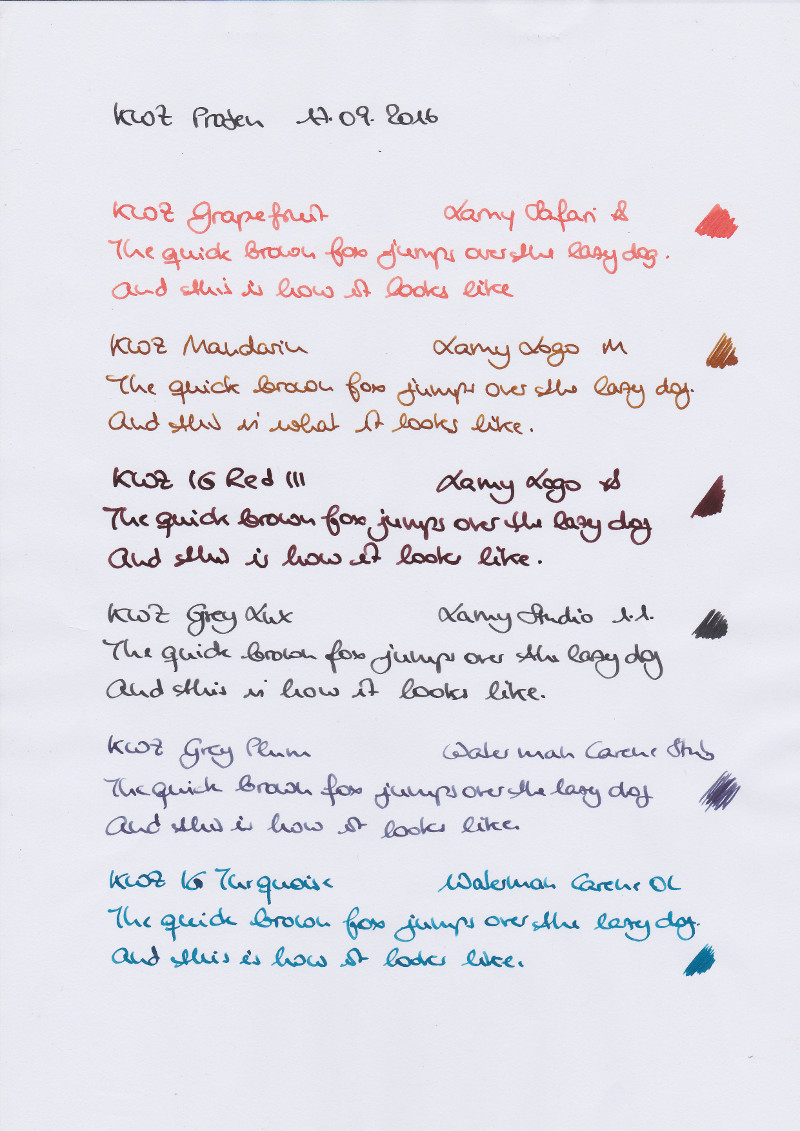 KWZ Proben 17.09.2016
KWZ Grapefruit Lamy Safari A
The quick brown fox jumps over the lazy dog.
And this is how it looks like
KWZ Mandarin Lamy Logo M
The quick brown fox jumps over the lazy dog.
And this is what it looks like.
KWZ IG Red III Lamy Logo A
The quick brown fox jumps over the lazy dog
And this is how it looks like.
KWZ Grey Lux Lamy Studio 1.1.
The quick brown fox jumps over the lazy dog
And this is how it looks like.
KWZ Grey Plum Waterman Carene Stub
The quick brown fox jumps over the lazy dog
And this is how it looks like.
KWZ IG Turquoise Waterman Carene OL
The quick brown fox jumps over the lazy dog.
And this is how it looks like.